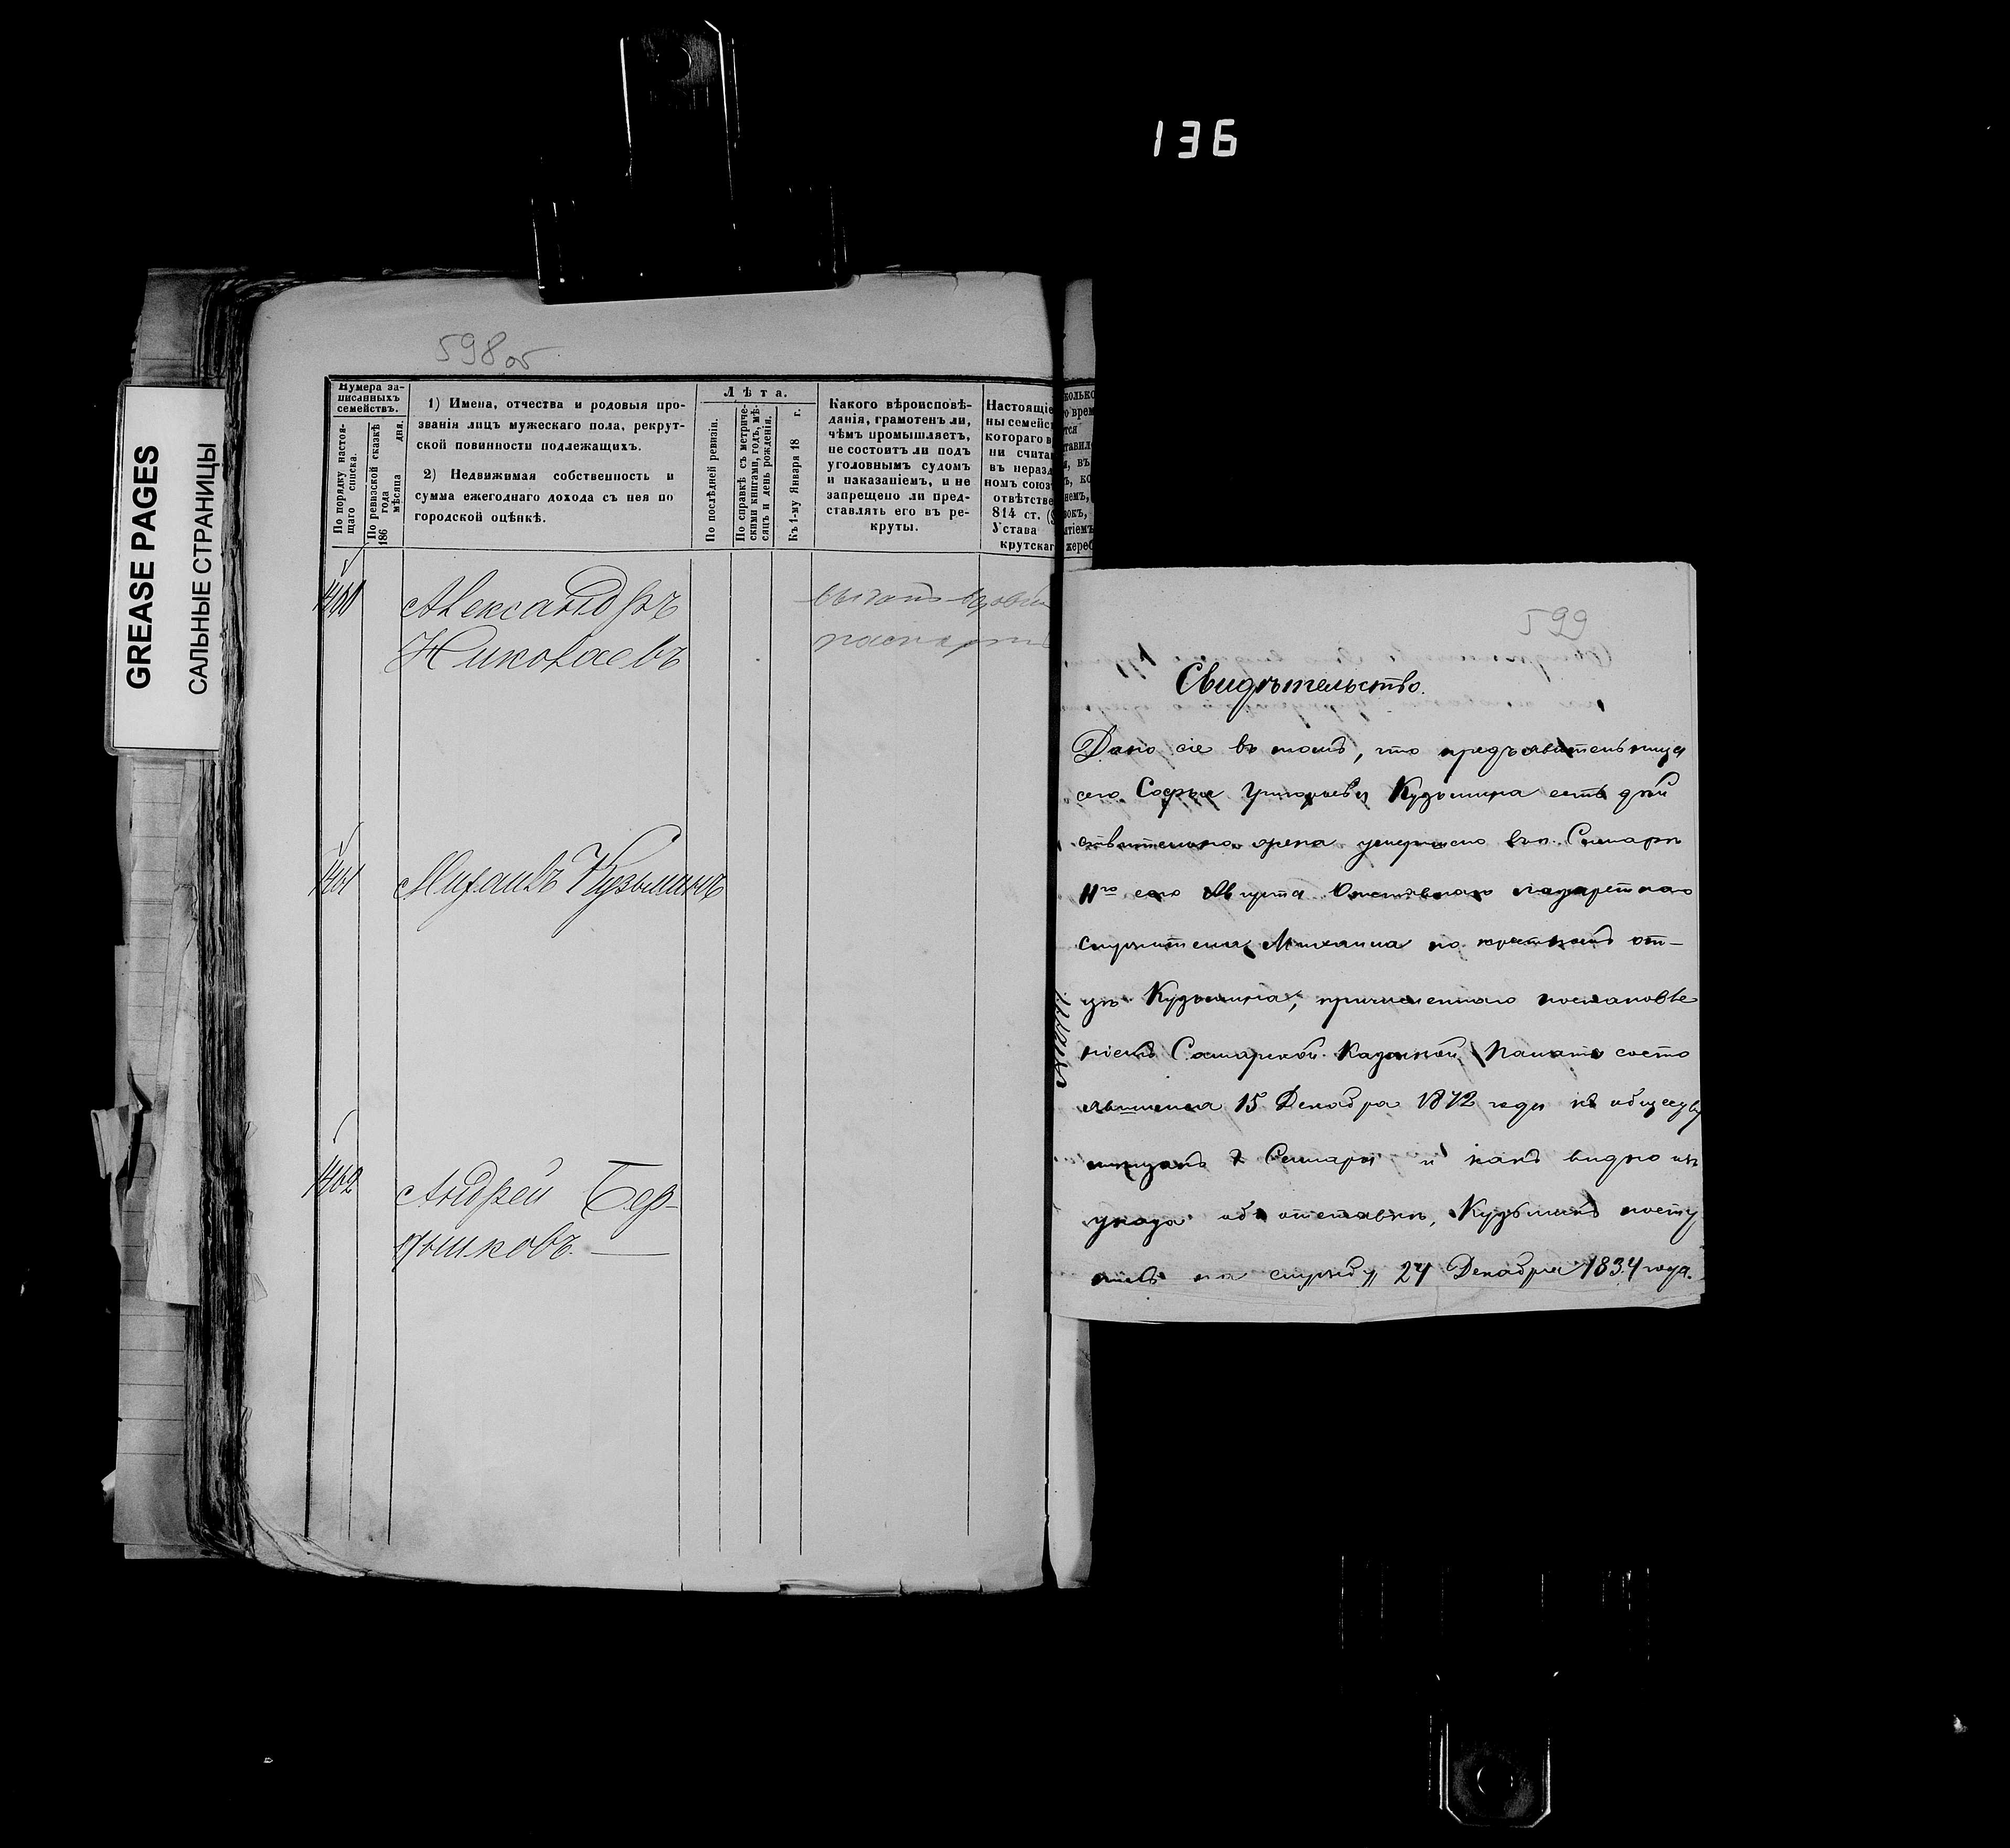 136
GREASE PAGES
САЛЬНЫЕ СТРАНИЦЫ
598 об
Нумера за-
писанныхъ
семействъ.
По порядку настоя-
щаго списка.
По ревизской сказкѣ
186 года
мѣсяца дня.
1) Имена, отчества и родовыя про-
званія лицъ мужескаго пола, рекрут-
ской повинности подлежащихъ.
2) Недвижимая собственность и
сумма ежегоднаго дохода съ нея по
городской оцѣнкѣ.
Лѣта.
По послѣдней ревизіи.
По справкѣ съ метриче-
скими книгами, годъ, мѣ-
сяцъ и день рожденія.
Къ 1-му Января 18 г.
Какого вѣроисповѣ-
данія, грамотенъ ли,
чѣмъ промышляетъ,
не состоитъ ли подъ
уголовнымъ судомъ
и наказаніемъ, и не
запрещено ли пред-
ставлять его въ ре-
круты.
Настоящіе
ны семейс
котораго в
ни счита
въ нераз
номъ союз
отвѣтстве
814 ст.
Устава
крутскаг
1400
Александръ
Николаевъ
1401
Михаилъ Кузьминъ
1402
Андрей Бер-
дышковъ
599
Свидѣтельство.
Дано сіе въ томъ, что предъявительница
сего Софья Григорьева Кузьмина есть дѣй
ствительно жена умершаго въ г. Самарѣ
11го сего Августа Отставнаго лазаретнаго
служителя Михаила по крестномъ от-
цѣ Кузьмина, причисленнаго постановле
ніемъ Самарской Казенной Палаты состо
явшимся 15 Декабря 1872 года къ обществу
мѣщанъ г Самары и какъ видно изъ
указа объ отставкѣ, Кузьминъ посту
пилъ на службу 24 Декабря 1834 года.